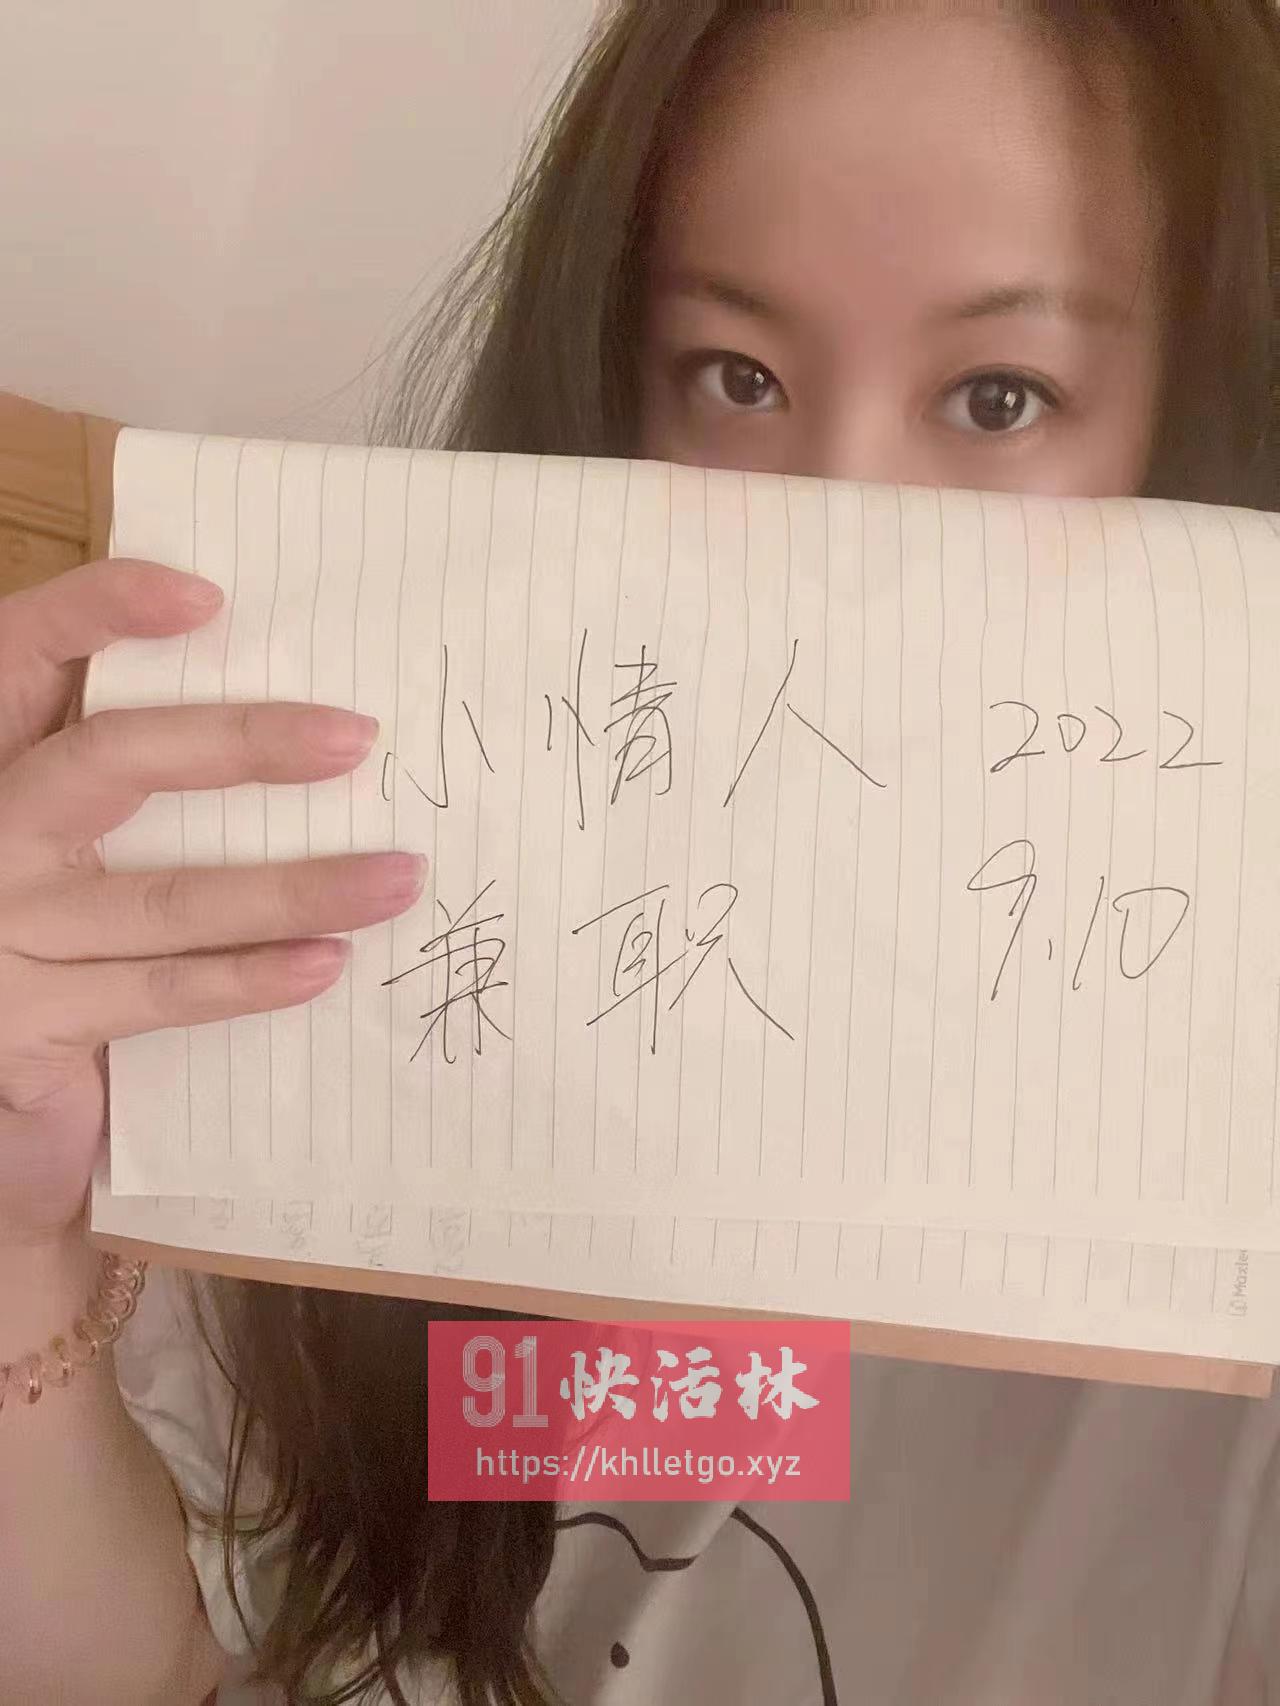 小情人 2022
兼职 9.10
Maxle
91快活林
https://khlletgo.xyz